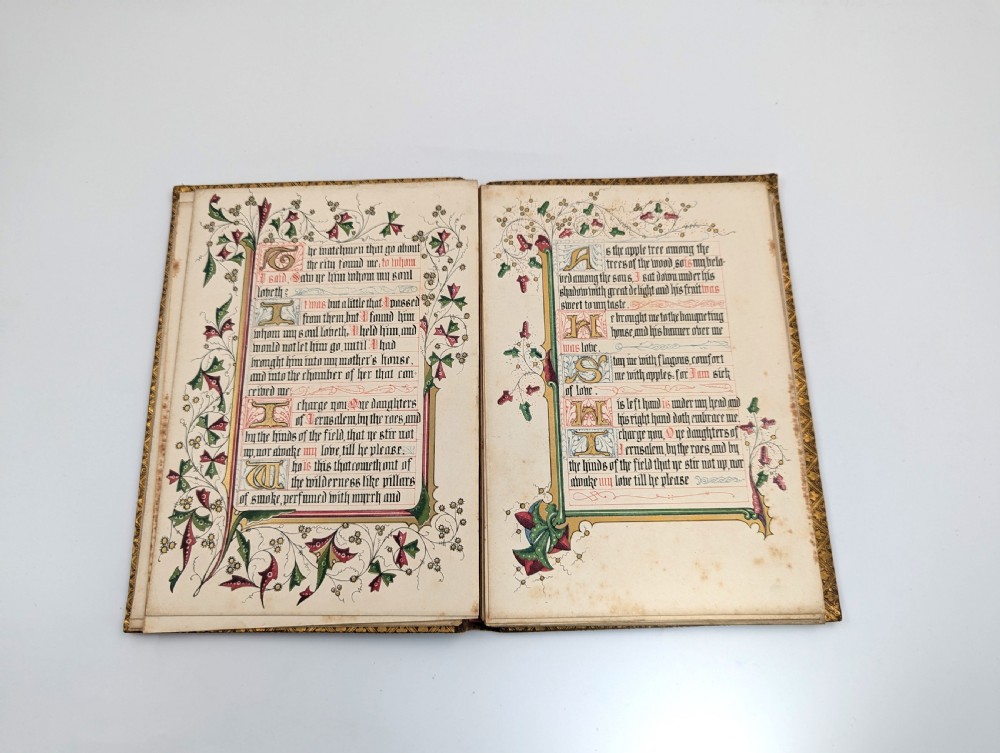 The watchmen that go about
the city found me, to whom
I said, Saw ye him whom my soul
loveth:
It was but a little that I passed
from them, but I found him
whom my soul loveth, I held him, and
would not let him go, until I had
brought him into my mother's house,
and into the chamber of her that con-
ceived me
I charge you, O ye daughters
of Jerusalem, by the roes, and
by the hinds of the field, that ye stir not
up, nor awake my love, till he please.
Who is this that cometh out of
the wilderness like pillars
of smoke, perfumed with myrrh and
As the apple tree among the
trees of the wood so is my belo-
ved among the sons, I sat down under his
shadow with great delight and his fruit was
sweet to my taste.
He brought me to the banqueting
house, and his banner over me
was love.
Stay me with flagons, comfort
me with apples, for I am sick
of love.
His left hand is under my head and
his right hand doth embrace me.
I charge you, O ye daughters of
Jerusalem, by the roes, and by
the hinds of the field that ye stir not up, nor
awake my love till he please